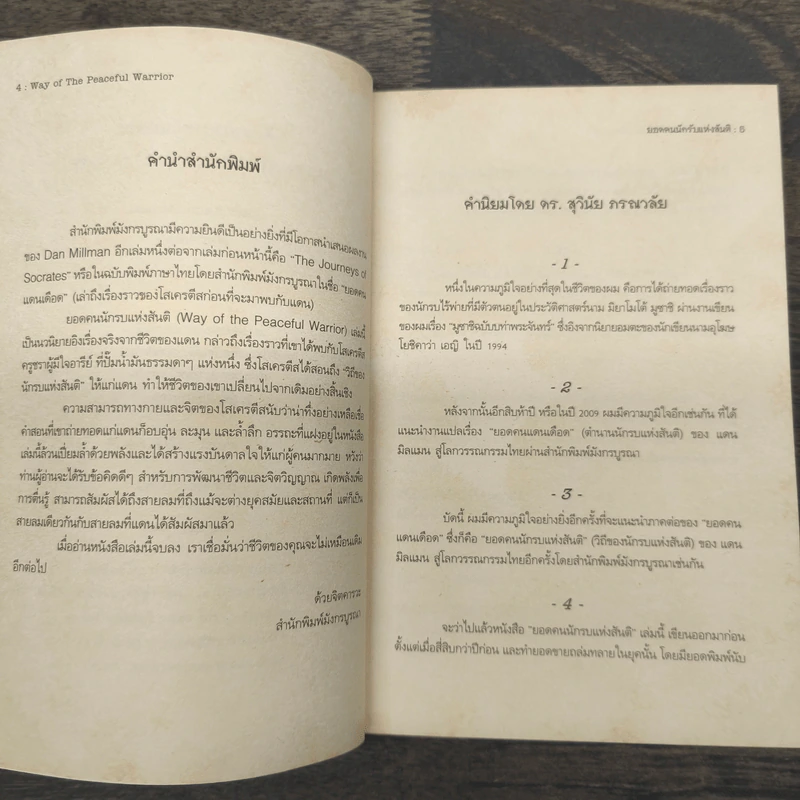 4 : Way of The Peaceful Warrior
คำนำสำนักพิมพ์
สำนักพิมพ์มังกรบูรณามีความยินดีเป็นอย่างยิ่งที่มีโอกาสนำเสนอผลงาน
ของ Dan Millman อีกเล่มหนึ่งต่อจากเล่มก่อนหน้านี้คือ "The Journeys of
Socrates" หรือในฉบับพิมพ์ภาษาไทยโดยสำนักพิมพ์มังกรบูรณาในชื่อ "ยอดคน
แดนเดือด" (เล่าถึงเรื่องราวของโสเครตีสก่อนที่จะมาพบกับแดน)
ยอดคนนักรบแห่งสันติ (Way of the Peaceful Warrior) เล่มนี้
เป็นนวนิยายอิงเรื่องจริงจากชีวิตของแดน กล่าวถึงเรื่องราวที่เขาได้พบกับโสเครตีส
ครูชราผู้มีใจอารีย์ ที่ปั๊มน้ำมันธรรมดาๆ แห่งหนึ่ง ซึ่งโสเครตีสได้สอนถึง "วิถีของ
นักรบแห่งสันติ" ให้แก่แดน ทำให้ชีวิตของเขาเปลี่ยนไปจากเดิมอย่างสิ้นเชิง
ความสามารถทางกายและจิตของโสเครตีสนับว่าน่าทึ่งอย่างเหลือเชื่อ
คำสอนที่เขาถ่ายทอดแก่แดนก็อบอุ่น ละมุน และล้ำลึก อรรถะที่แฝงอยู่ในหนังสือ
เล่มนี้ล้วนเปี่ยมล้ำด้วยพลังและได้สร้างแรงบันดาลใจให้แก่ผู้คนมากมาย หวังว่า
ท่านผู้อ่านจะได้รับข้อคิดดีๆ สำหรับการพัฒนาชีวิตและจิตวิญญาณ เกิดพลังเพื่อ
การตื่นรู้ สามารถสัมผัสได้ถึงสายลมที่ถึงแม้จะต่างยุคสมัยและสถานที่ แต่ก็เป็น
สายลมเดียวกันกับสายลมที่แดนได้สัมผัสมาแล้ว
เมื่ออ่านหนังสือเล่มนี้จบลง เราเชื่อมั่นว่าชีวิตของคุณจะไม่เหมือนเดิม
อีกต่อไป
ด้วยจิตคารวะ
สำนักพิมพ์มังกรบูรณา
ยอดคนนักรบแห่งสันติ : 5
คำนิยมโดย ดร. สุวินัย ภรณวลัย
- 1 -
หนึ่งในความภูมิใจอย่างที่สุดในชีวิตของผม คือการได้ถ่ายทอดเรื่องราว
ของนักรบไร้พ่ายที่มีตัวตนอยู่ในประวัติศาสตร์นาม มิยาโมโต้ มูซาชิ ผ่านงานเขียน
ของผมเรื่อง "มูซาชิฉบับท่าพระจันทร์" ซึ่งอิงจากนิยายอมตะของนักเขียนนามอุโฆษ
โยชิคาว่า เอญิ ในปี 1994
- 2 -
หลังจากนั้นอีกสิบห้าปี หรือในปี 2009 ผมมีความภูมิใจอีกเช่นกัน ที่ได้
แนะนำงานแปลเรื่อง "ยอดคนแดนเดือด" (ตำนานนักรบแห่งสันติ) ของ แดน
มิลแมน สู่โลกวรรณกรรมไทยผ่านสำนักพิมพ์มังกรบูรณา
- 3 -
บัดนี้ ผมมีความภูมิใจอย่างยิ่งอีกครั้งที่จะแนะนำภาคต่อของ "ยอดคน
แดนเดือด" ซึ่งก็คือ "ยอดคนนักรบแห่งสันติ" (วิถีของนักรบแห่งสันติ) ของ แดน
มิลแมน สู่โลกวรรณกรรมไทยอีกครั้งโดยสำนักพิมพ์มังกรบูรณาเช่นกัน
- 4 -
จะว่าไปแล้วหนังสือ "ยอดคนนักรบแห่งสันติ" เล่มนี้ เขียนออกมาก่อน
ตั้งแต่เมื่อสี่สิบกว่าปีก่อน และทำยอดขายถล่มทลายในยุคนั้น โดยมียอดพิมพ์นับ